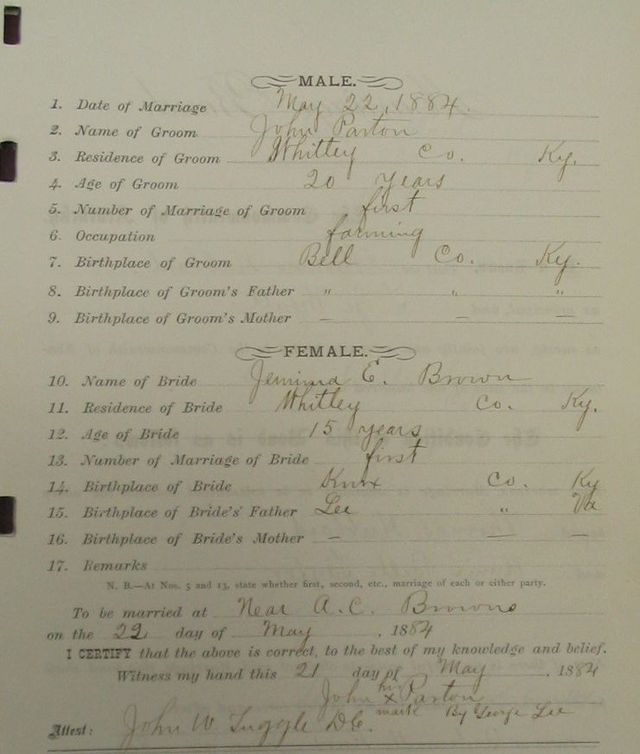 MALE.
1. Date of Marriage May 22, 1884.
2. Name of Groom John Parton
3. Residence of Groom Whitley Co. Ky.
4. Age of Groom 20 years
5. Number of Marriage of Groom first
6. Occupation farming
7. Birthplace of Groom Bell Co. Ky.
8. Birthplace of Groom's Father " " "
9. Birthplace of Groom's Mother — — —
FEMALE.
10. Name of Bride Jemima E. Brown
11. Residence of Bride Whitley Co. Ky.
12. Age of Bride 15 years
13. Number of Marriage of Bride first
14. Birthplace of Bride Knox Co. Ky
15. Birthplace of Bride's Father Lee " Va
16. Birthplace of Bride's Mother — — —
17. Remarks
N. B.—At Nos. 5 and 13, state whether first, second, etc., marriage of each or either party.
To be married at Near A. C. Browns
on the 22 day of May, 1884
I CERTIFY that the above is correct, to the best of my knowledge and belief.
Witness my hand this 21 day of May, 1884
John his x mark Parton
By George Lee
Attest: John W Tuggle D.C.